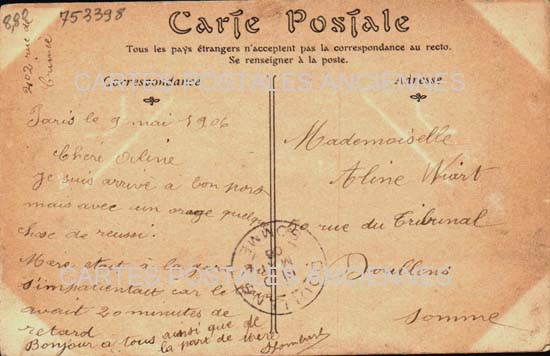 8,88
753398
202 rue de
Crimée
Carte Postale
Tous les pays étrangers n'acceptent pas la correspondance au recto.
Se renseigner à la poste.
CARTES POSTALES ANCIENNES
Correspondance
Paris le 9 mai 1906
Chère Orline
Je suis arrivé a bon port
mais avec un orage quelque
chose de reussi.
Mère etait à la gare
s'impatientait car le
avait 20 minutes de
retard
Bonjour a tous aussi que de
la part de mère
Adresse
Mademoiselle
Aline Wiart
50 rue du Tribunal
Doullens
Somme
CARTES POSTALES ANCIENNES